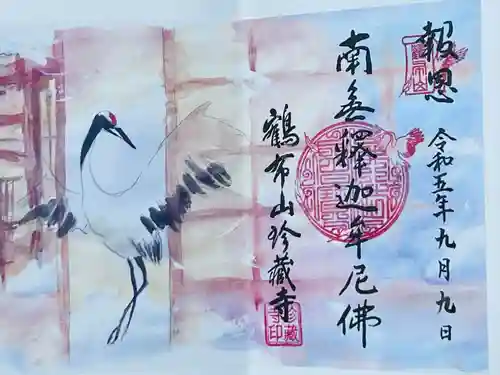 報恩
令和五年九月九日
南無釋迦牟尼佛
鶴布山珍蔵寺